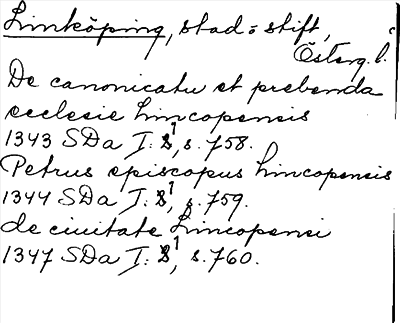 Linköping, stad o stift,
Österg. l.
De canonicatu et prebenda
ecclesie Lincopensis
1343 SDa I: 1, s. 758.
Petrus episcopus Lincopensis
1344 SDa I: 1, s. 759.
de ciuitate Lincopensi
1347 SDa I: 1, s. 760.